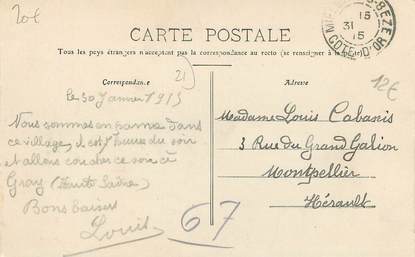 20€
CARTE POSTALE
Tous les pays étrangers n'acceptent pas la correspondance au recto (se renseigner à la
Correspondance
Adresse
21
15
31
15
BÈZE
CÔTE-D'OR
12€
le 30 Janvier 1915
Nous sommes en panne dans
ce village, il est 7 heures du soir
et allons coucher ce soir à
Gray (Haute Saône)
Bons baisers
Louis
67
Madame Louis Cabanis
3 Rue du Grand Galion
Montpellier
Hérault